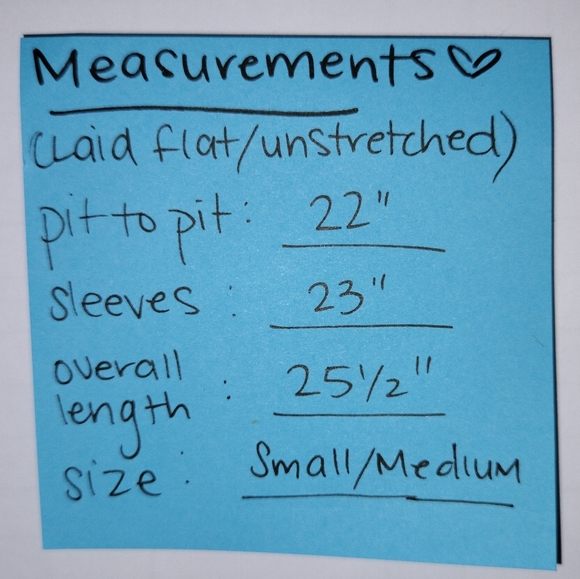 Measurements ♡
(Laid flat/unstretched)
pit to pit: 22"
sleeves : 23"
overall
length : 25 1/2"
size : Small/Medium